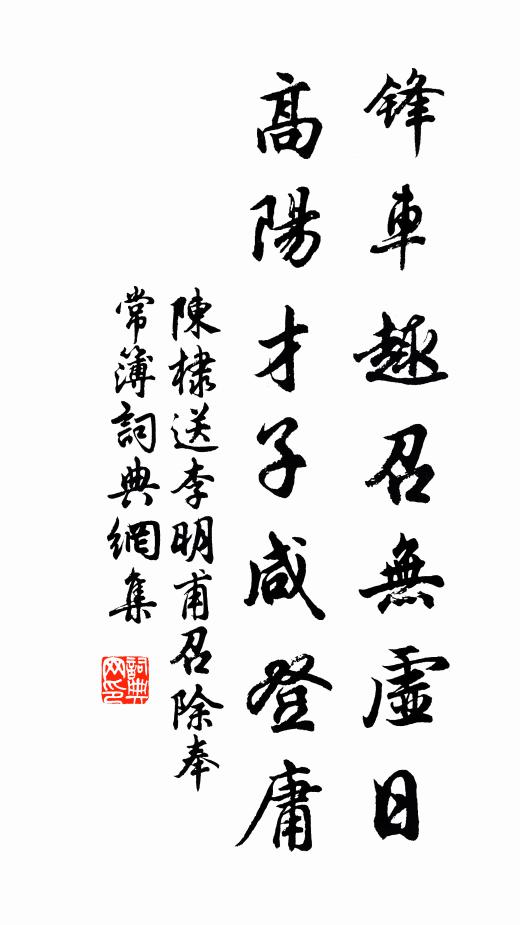 锋車趣召無虛日
高陽才子咸登庸
陳棣送李明甫召除奉
常簿詞典網集
詞典
网印